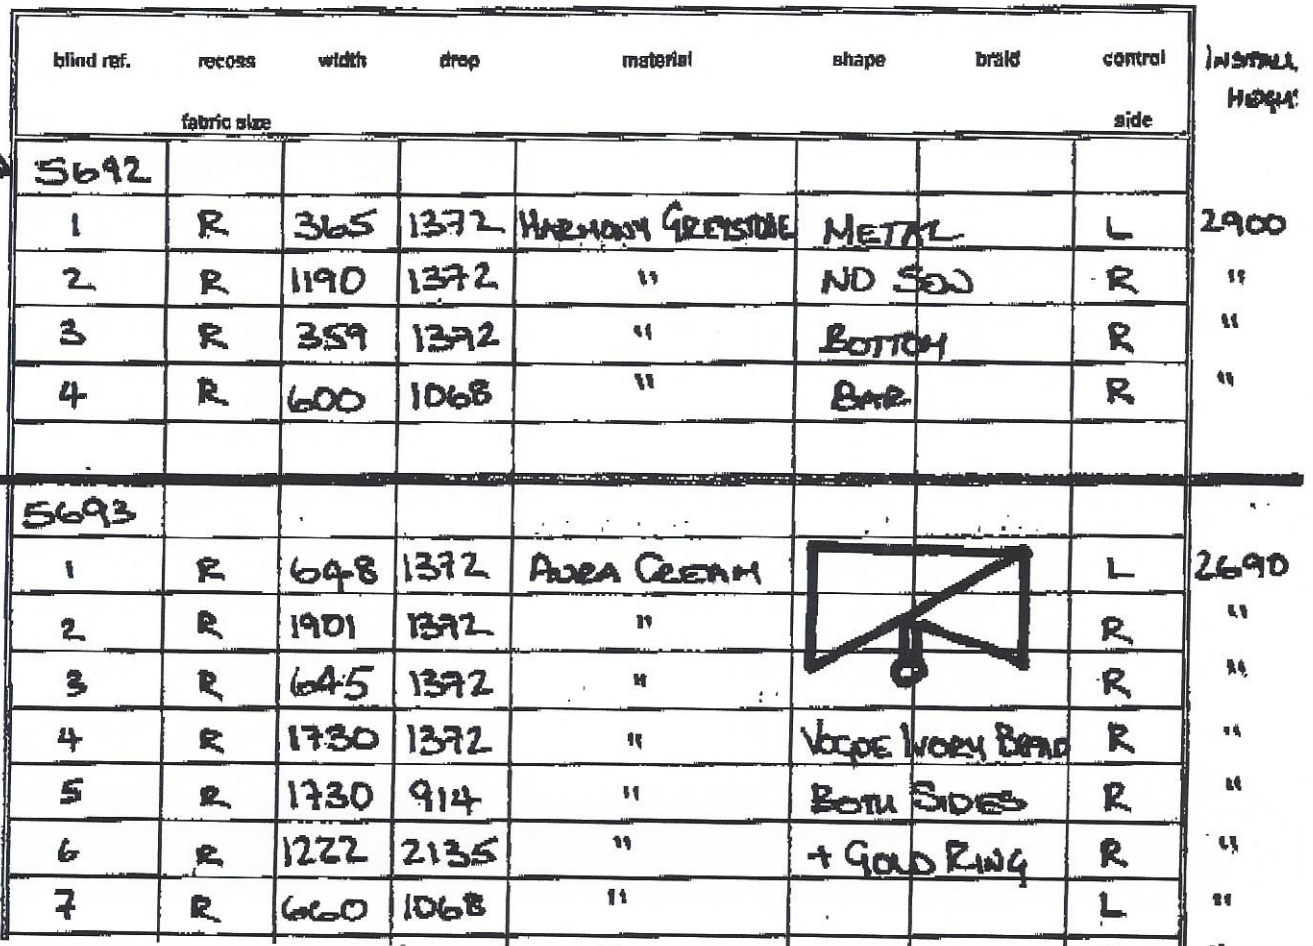 blind ref. recess width drop material shape braid control INSTALL
fabric size side HEIGHT
5692
1 R 365 1372 HARMONY GREYSTONE METAL L 2900
2 R 1190 1372 " NO SEW R "
3 R 359 1372 " BOTTOM R "
4 R 600 1068 " BAR R "
5693
1 R 648 1372 AURA CREAM L 2690
2 R 1901 1372 " R "
3 R 645 1372 " R "
4 R 1730 1372 " VOGUE IVORY BRAID R "
5 R 1730 914 " BOTH SIDES R "
6 R 1222 2135 " + GOLD RING R "
7 R 660 1068 " L "